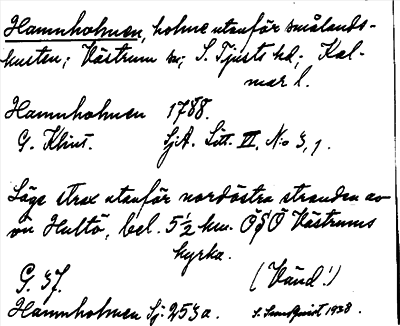 Hamnholmen, holme utanför smålands-
kusten; Västrum sn; S. Tjusts hd; Kal-
mar l.
Hamnholmen 1788.
G. Klint. SjA. Litt. II, No 3, 1.
Läge strax utanför nordöstra stranden av
ön Hultö, bel. 5½ km. ÖSÖ Västrums
kyrka.
(Vänd!)
Hamnholmen Sj. 253a. S. Sundquist 1938.